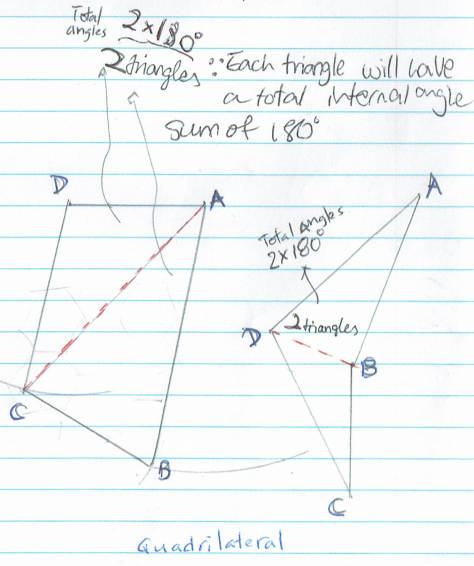 Total angles 2×180°
2 triangles ∵ Each triangle will have
a total internal angle
sum of 180°
D
A
C
B
A
Total Angles
2×180°
D
2 triangles
B
C
Quadrilateral